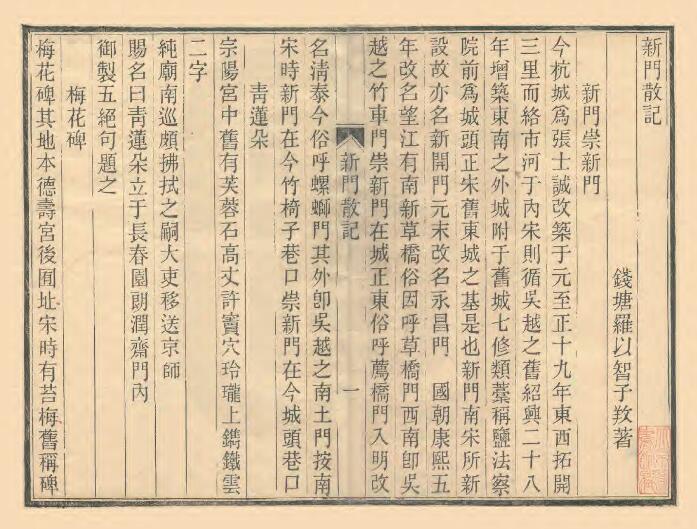 新門散記
錢塘羅以智子敉著
新門崇新門
今杭城爲張士誠改築于元至正十九年東西拓開
三里而絡市河于內宋則循吳越之舊紹興二十八
年增築東南之外城附于舊城七修類藁稱鹽法察
院前爲城頭正朱舊東城之基是也新門南宋所新
設故亦名新開門元末改名永昌門 國朝康熙五
年改名望江有南新草橋俗因呼草橋門西南卽吳
越之竹車門崇新門在城正東俗呼薦橋門入明改
新門散記
一
名淸泰今俗呼螺螄門其外卽吳越之南土門按南
宋時新門在今竹椅子巷口崇新門在今城頭巷口
靑蓮朵
宗陽宮中舊有芙蓉石高丈許竇穴玲瓏上鐫鐵雲
二字
純廟南巡頗拂拭之嗣大吏移送京師
賜名曰靑蓮朵立于長春園朗潤齋門內
御製五絕句題之
梅花碑
梅花碑其地本德壽宮後圃址宋時有苔梅舊稱碑